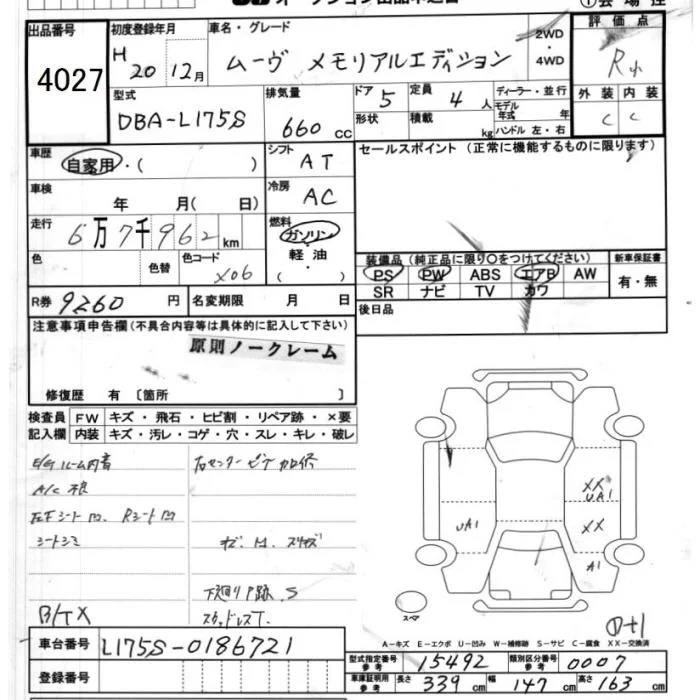 ①会場控
出品番号
4027
初度登録年月
H 20 12月
車名・グレード
ムーヴ メモリアルエディション
2WD
・
4WD
評価点
R
外装 内装
C C
型式
DBA-L175S
排気量
660 cc
ドア 5
形状
定員 4 人
積載 kg
ディーラー・並行
モデル
年式 年
ハンドル 左・右
車歴
自家用・( )
シフト
AT
セールスポイント(正常に機能するものに限ります)
車検
年 月( 日)
冷房
AC
走行
6万7千962km
燃料
ガソリン
軽油
・
( )
色
色替
色コード
X06
装備品(純正品に限り○をつけてください)
PS PW ABS エアB AW
SR ナビ TV カワ
新車保証書
有・無
R券 9260 円
名変期限 月 日
後日品
注意事項申告欄(不具合内容等は具体的に記入して下さい)
原則ノークレーム
修復歴 有〔箇所 〕
検査員 FW キズ・飛石・ヒビ割・リペア跡・×要
記入欄 内装 キズ・汚レ・コゲ・穴・スレ・キレ・破レ
E/Gルーム内音
A/C 不良
シートシミ
下廻リア跡、S
スタッドレスT.
B/TX
XX
UA1
UA1
XX
A1
スペア
A-キズ E-エクボ U-凹み W-補修跡 S-サビ C-腐食 XX-交換済
車台番号 L175S-0186721
登録番号
型式指定番号
参考
15492
類別区分番号
参考
0007
車庫証明用
参考
長さ 339 cm 幅 147 cm 高さ 163 cm